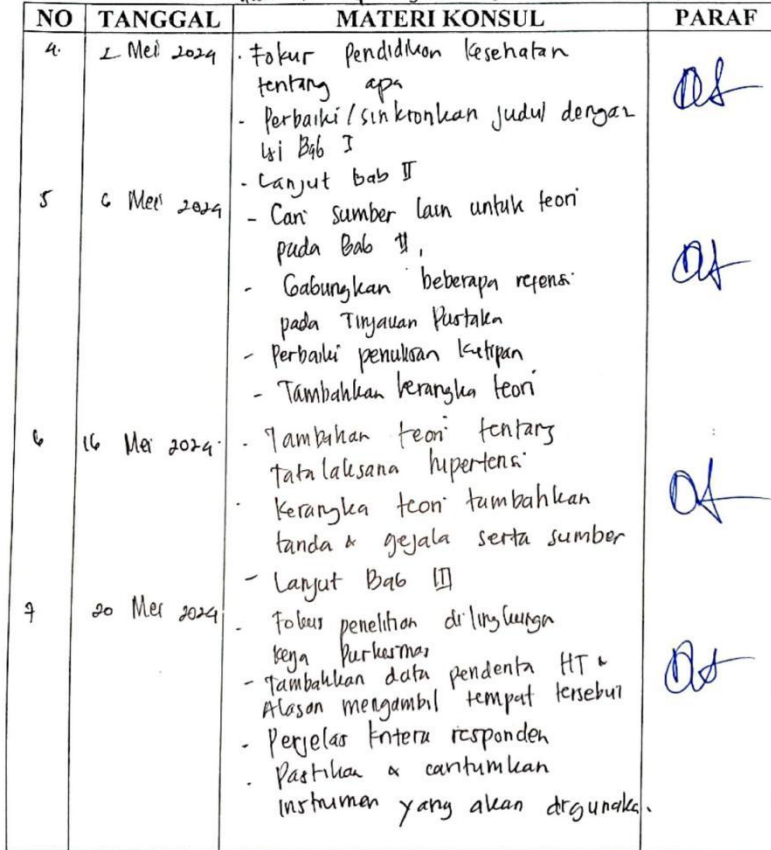 NO TANGGAL MATERI KONSUL PARAF
4. 2 Mei 2024 . Fokur Pendidikon Kesehatan
tentang apa
- Perbaiki / sinkronkan judul dengan
isi Bab I
- Lanjut bab II
5 6 Mei 2024 - Cari sumber lain untuk teori
pada Bab II,
- Gabungkan beberapa refensi
pada Tinjauan Pustaka
- Perbaiki penulisan kutipan
- Tambahkan kerangka teori
6 16 Mei 2024 . Tambahan teori tentang
tata laksana hipertensi
. Kerangka teori tambahkan
tanda & gejala serta sumber
- Lanjut Bab III
7 20 Mei 2024 - Fokus penelitian di lingkunga
kerja Purkesmas
- Tambahkan data penderita HT &
Alasan mengambil tempat tersebut
- Perjelas kriteria responden
. Pastikan & cantumkan
instrumen yang akan digunaka.